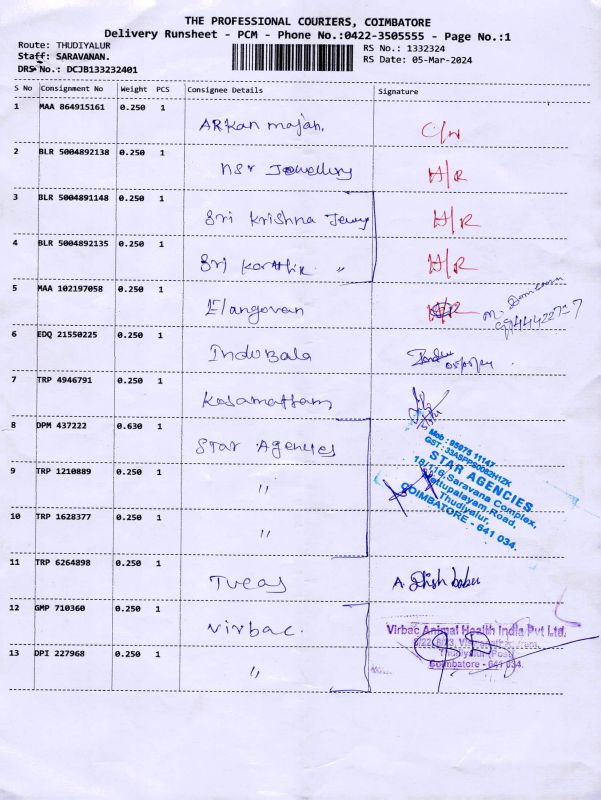 THE PROFESSIONAL COURIERS, COIMBATORE
Delivery Runsheet - PCM - Phone No.:0422-3505555 - Page No.:1
Route: THUDIYALUR RS No.: 1332324
Staff: SARAVANAN. RS Date: 05-Mar-2024
DRS No.: DCJB133232401
S No Consignment No Weight PCS Consignee Details Signature
1 MAA 864915161 0.250 1
ARKan majah. C/N
2 BLR 5004892138 0.250 1
NSr Jewellery H/R
3 BLR 5004891148 0.250 1
Sri Krishna Jewry H/R
4 BLR 5004892135 0.250 1
Sri Karthik " H/R
5 MAA 102197058 0.250 1
Elangovan H/R
6 EDQ 21550225 0.250 1
Indubala
7 TRP 4946791 0.250 1
Kosamattam
8 DPM 437222 0.630 1
Star Agencies
Mob: 95975 11147
STAR AGENCIES
18/116, Saravana Complex,
Mettupalayam Road,
Thudiyalur,
COIMBATORE - 641 034.
9 TRP 1210889 0.250 1
"
10 TRP 1628377 0.250 1
"
11 TRP 6264898 0.250 1
Tucas
12 GMP 710360 0.250 1
Virbac.
Virbac Animal Health India Pvt Ltd.
Thudiyalur Post
Coimbatore - 641 034.
13 DPI 227968 0.250 1
"